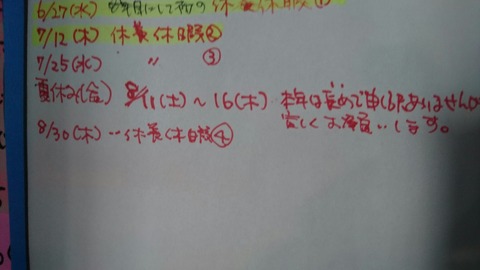 6/27(水) 休養休暇①
7/12(木) 休養休暇②
7/25(水) 〃 ③
夏休み(会) 8/11(土)～16(木) 本年は長めで申し訳ありませんが
宜しくお願いします。
8/30(木)…休養休暇④